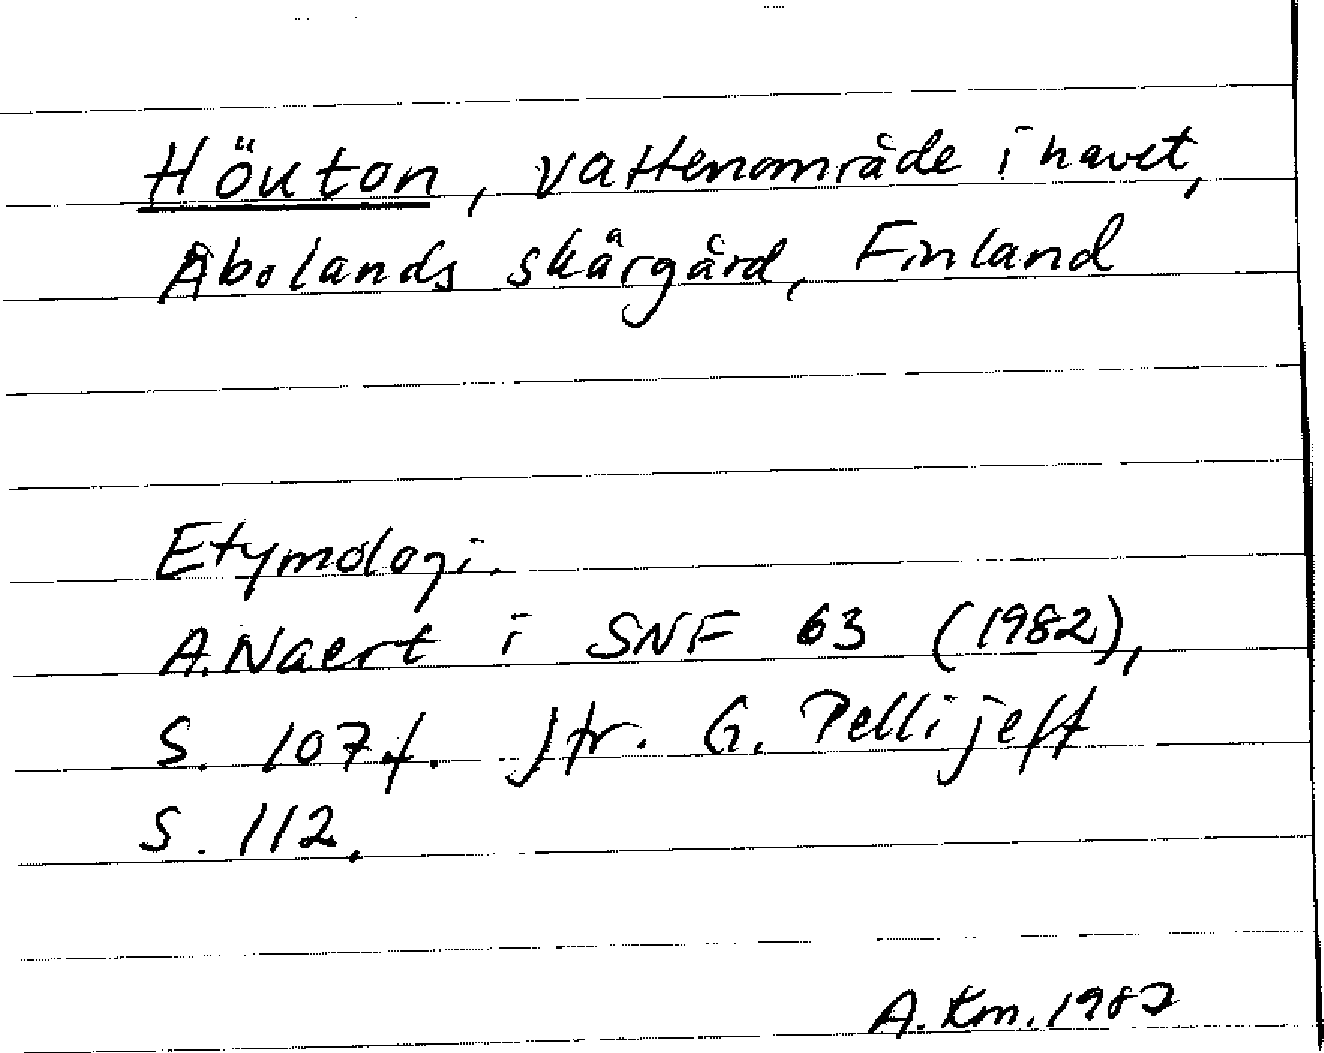 Höuton, vattenområde i havet,
Åbolands skärgård, Finland
Etymologi.
A. Naert i SNF 63 (1982),
S. 107f. Jfr. G. Pellijeff
S. 112.
A. Km. 1982